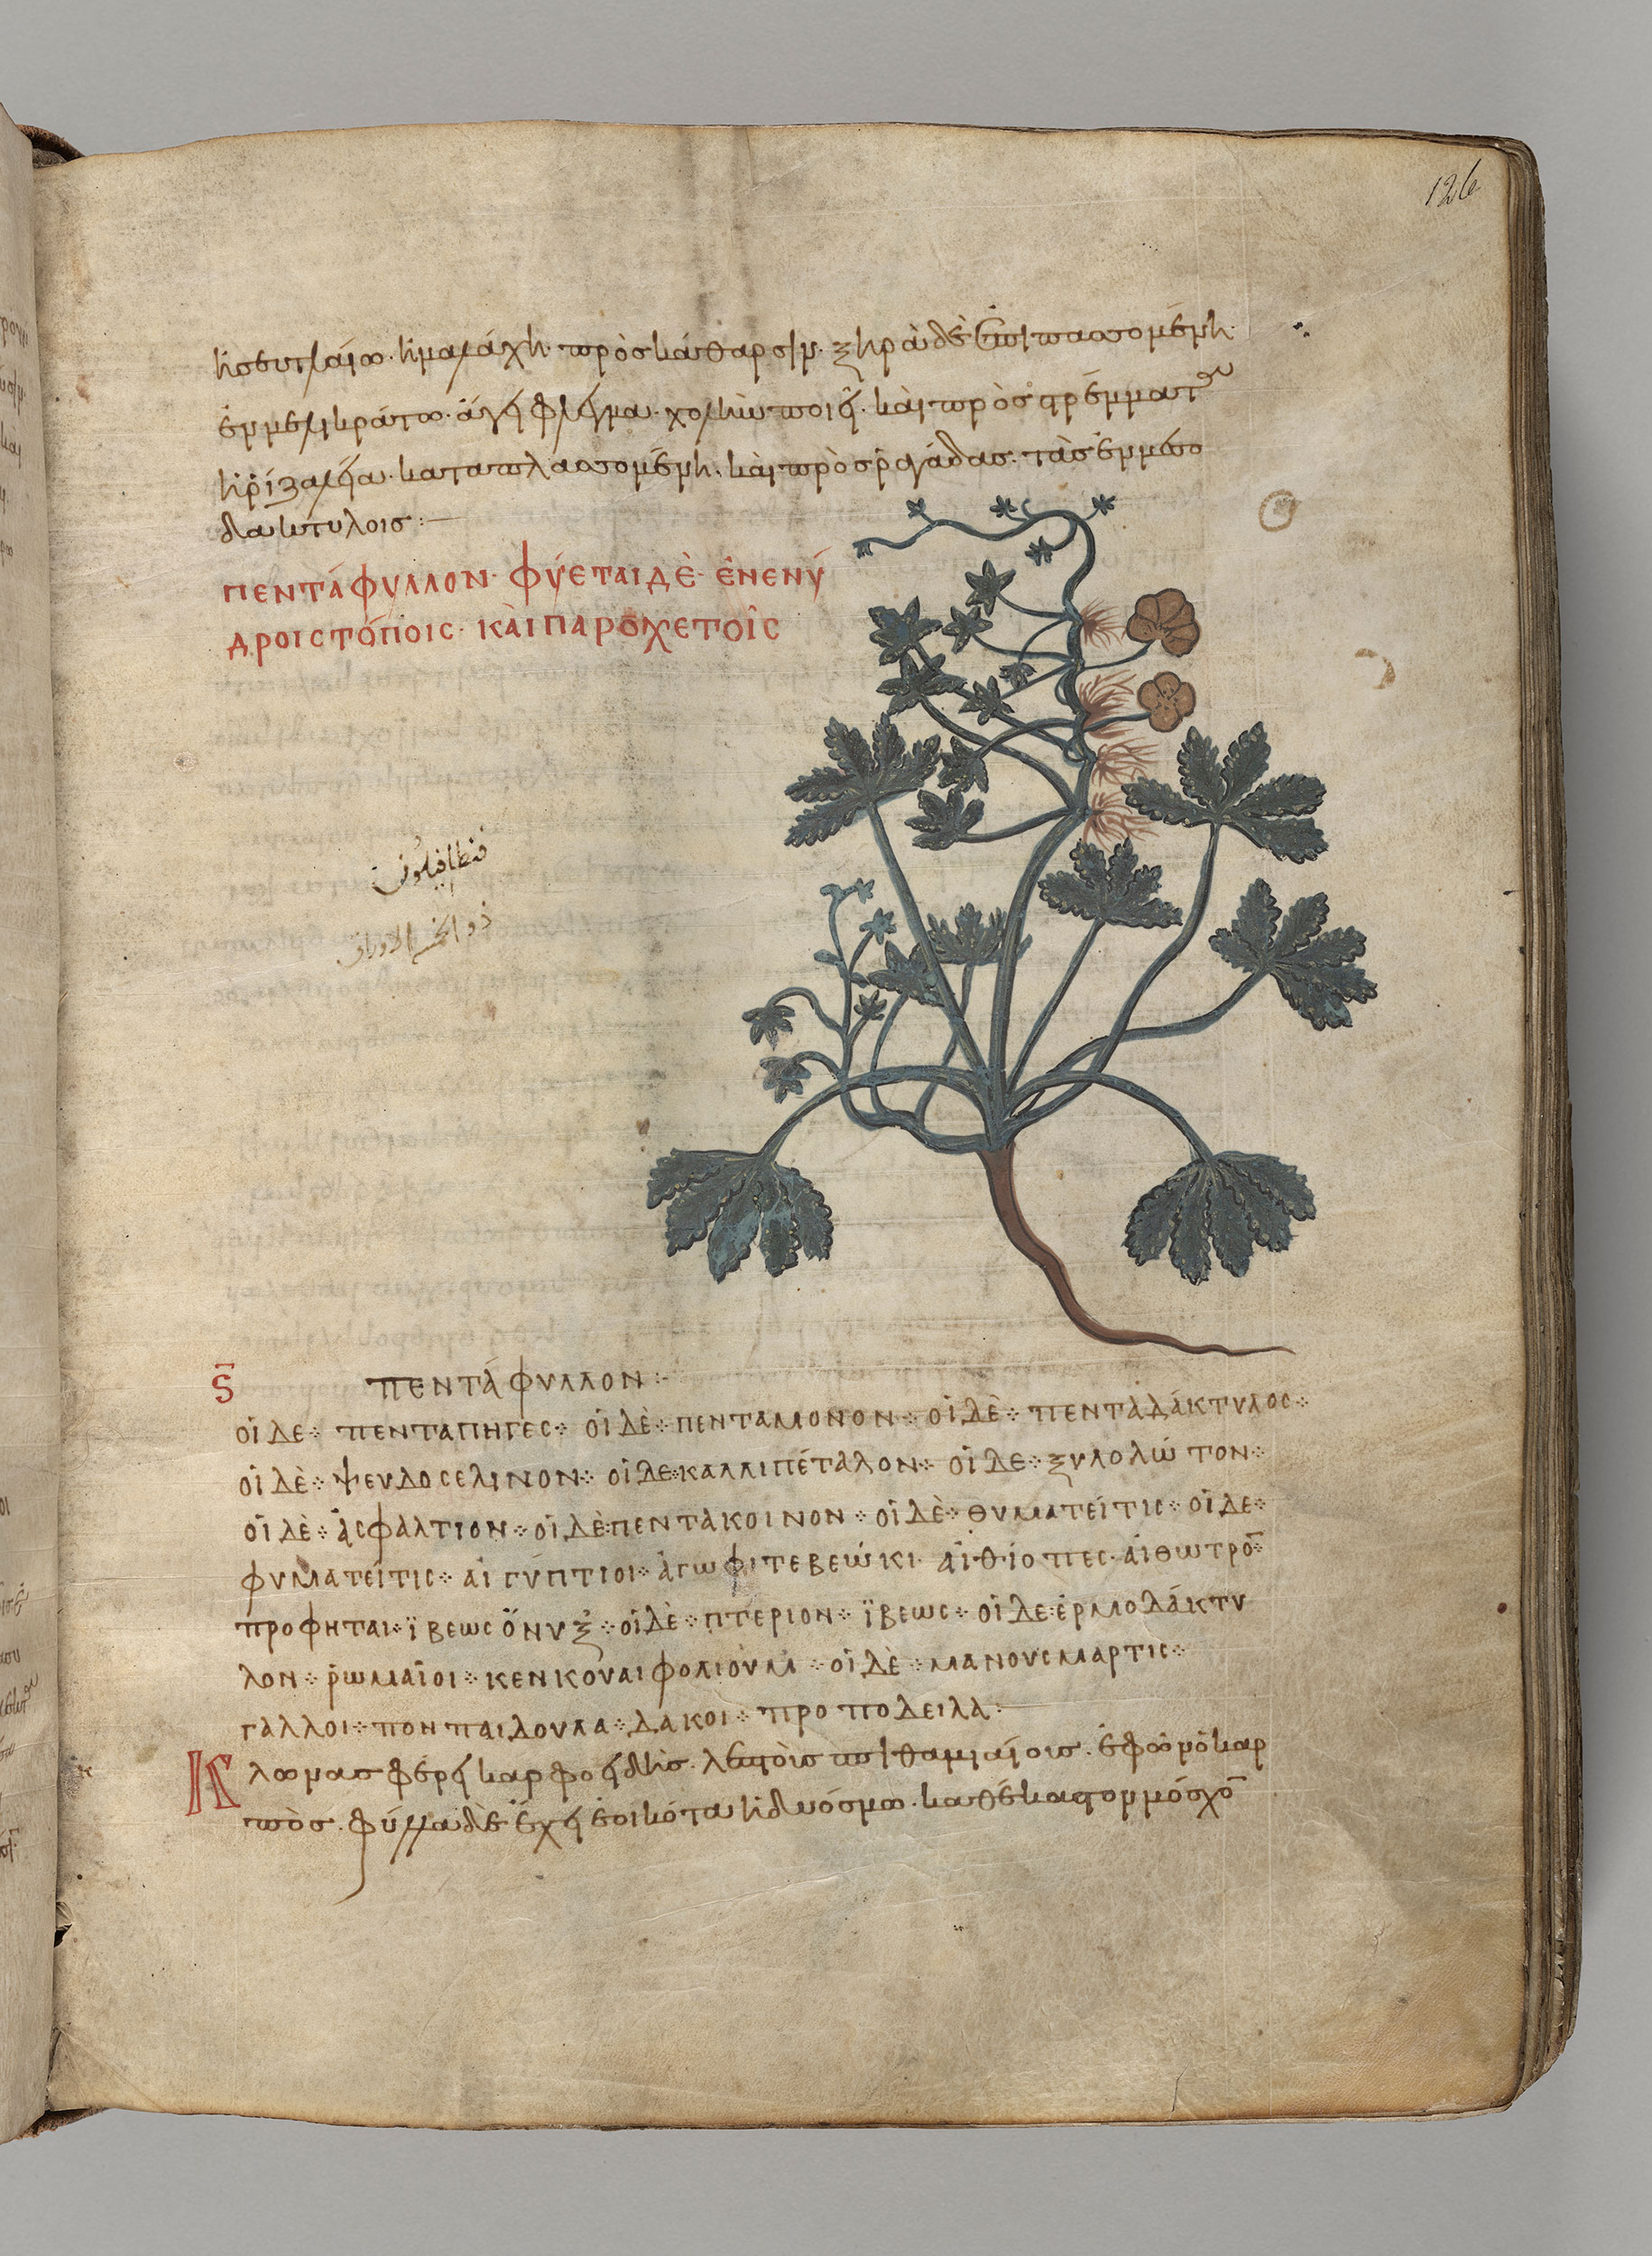 126
ἢ σευτλίω· ἢ μαλάχη· πρὸς κάθαρσιν· ξηρὰ δὲ ἐπιπασσομένη
ἐν μελικράτω· ἄγει φλέγμα· χολὴν ποιεῖ· καὶ πρὸς
καταπλασσομένη· καὶ πρὸς ῥαγάδας· τὰς ἐν
δακτύλοις:—
ΠΕΝΤΆΦΥΛΛΟΝ· ΦΎΕΤΑΙ ΔῈ· ἘΝ ΕΝΎ
ΔΡΟΙС ΤΌΠΟΙС· ΚᾺΙ ΠΑΡΟΧΕΤΟΙ͂С
فنطافيلون
ذو الخمسة الاوراق
S
ΠΕΝΤΆΦΥΛΛΟΝ:-
ΟΙ ΔΕ· ΠΕΝΤΑΠΗΓΕС· ΟΙ ΔῈ· ΠΕΝΤΑΜΟΝΟΝ· ΟΙ ΔῈ· ΠΕΝΤΑΔΆΚΤΥΛΟС·
ΟΙ ΔῈ· ΨΕΥΔΟСΕΛΙΝΟΝ· ΟΙ ΔΕ· ΚΑΛΛΙΠΈΤΑΛΟΝ· ΟΙ ΔΕ· ΞΥΛΟΛΏΤΟΝ·
ΟΙ ΔῈ· ἈСΦΑΛΤΙΟΝ· ΟΙ ΔῈ· ΠΕΝΤΑΚΟΙΝΟΝ· ΟΙ ΔῈ· ΘΥΜΑΤΕΊΤΙС· ΟΙ ΔΕ·
ΦΥΜΑΤΕΊΤΙС· ΑΙΓΎΠΤΙΟΙ· ἈΓΩΦΙΤΕΒΕΏΚΙ· ΑΙΘΊΟΠΕС· ΑΙΘΩΤΡΟ
ΠΡΟΦΗΤΑΙ· ΪΒΕΩС ὌΝΥΞ· ΟΙ ΔῈ· ΠΤΕΡΙΟΝ· ΪΒΕΩС· ΟΙ ΔΕ· ἙΡΜΟΔΆΚΤΥ
ΛΟΝ· ῬΩΜΑΙ͂ΟΙ· ΚΕΝΚΟΥΑΙΦΟΛΙΟΎΜ· ΟΙ ΔῈ· ΜΑΝΟΥСΜΑΡΤΙС·
ΓΑΛΛΟΙ· ΠΟΝΠΑΙΔΟΥΛΑ· ΔΑΚΟΙ· ΠΡΟΠΟΔΕΙΛΑ:—
Κλῶνας φέρει καρφοειδεῖς λεπτοὺς σπιθαμιαίους· ἐφ' ὧν ὁ καρ
πὸς· φύλλα δὲ ἔχει ἐοικότα ἡδυόσμω· καθ' ἕκαστον μόσχο